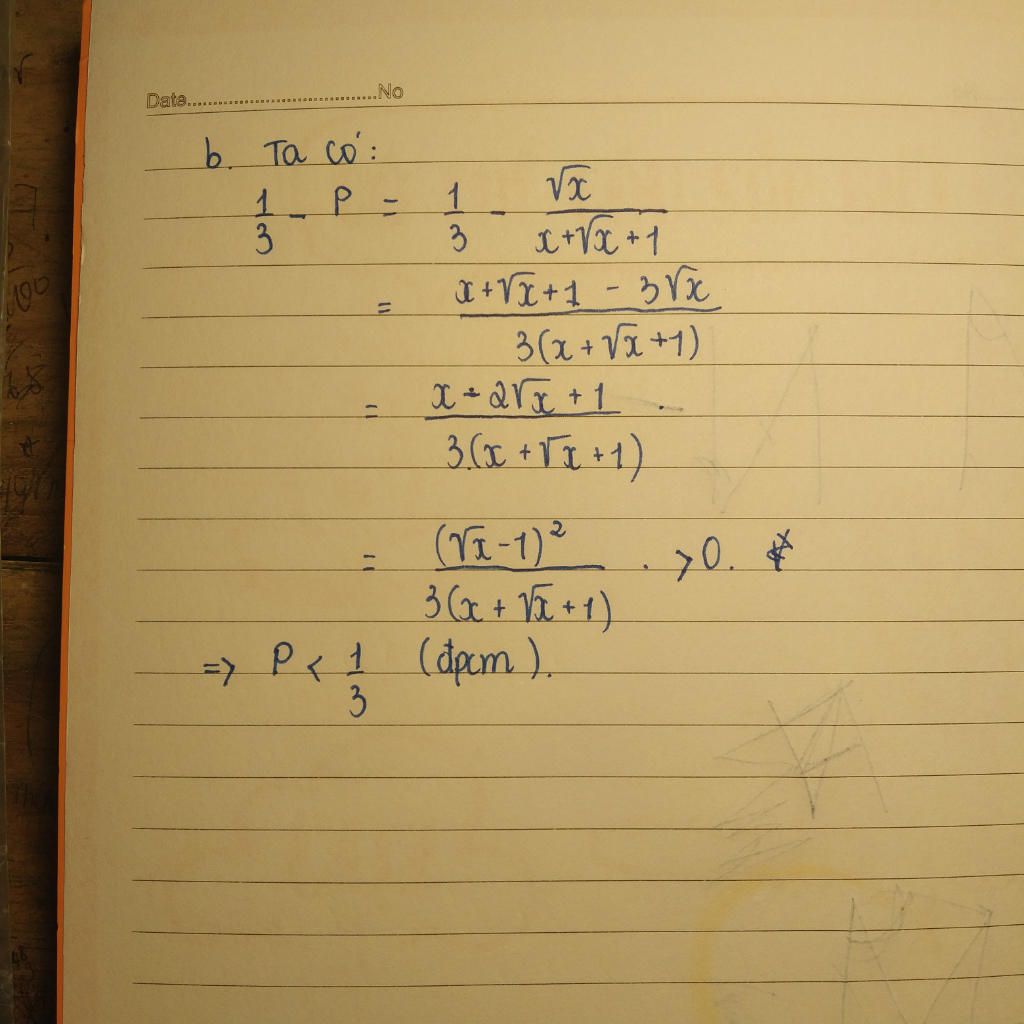 Date....................................No
b. Ta có:
1/3 - P = 1/3 - √x/(x+√x+1)
= (x+√x+1 - 3√x)/(3(x+√x+1))
= (x - 2√x + 1)/(3.(x+√x+1)) .
= (√x-1)²/(3(x+√x+1)) . >0.
=> P < 1/3 (đpcm).